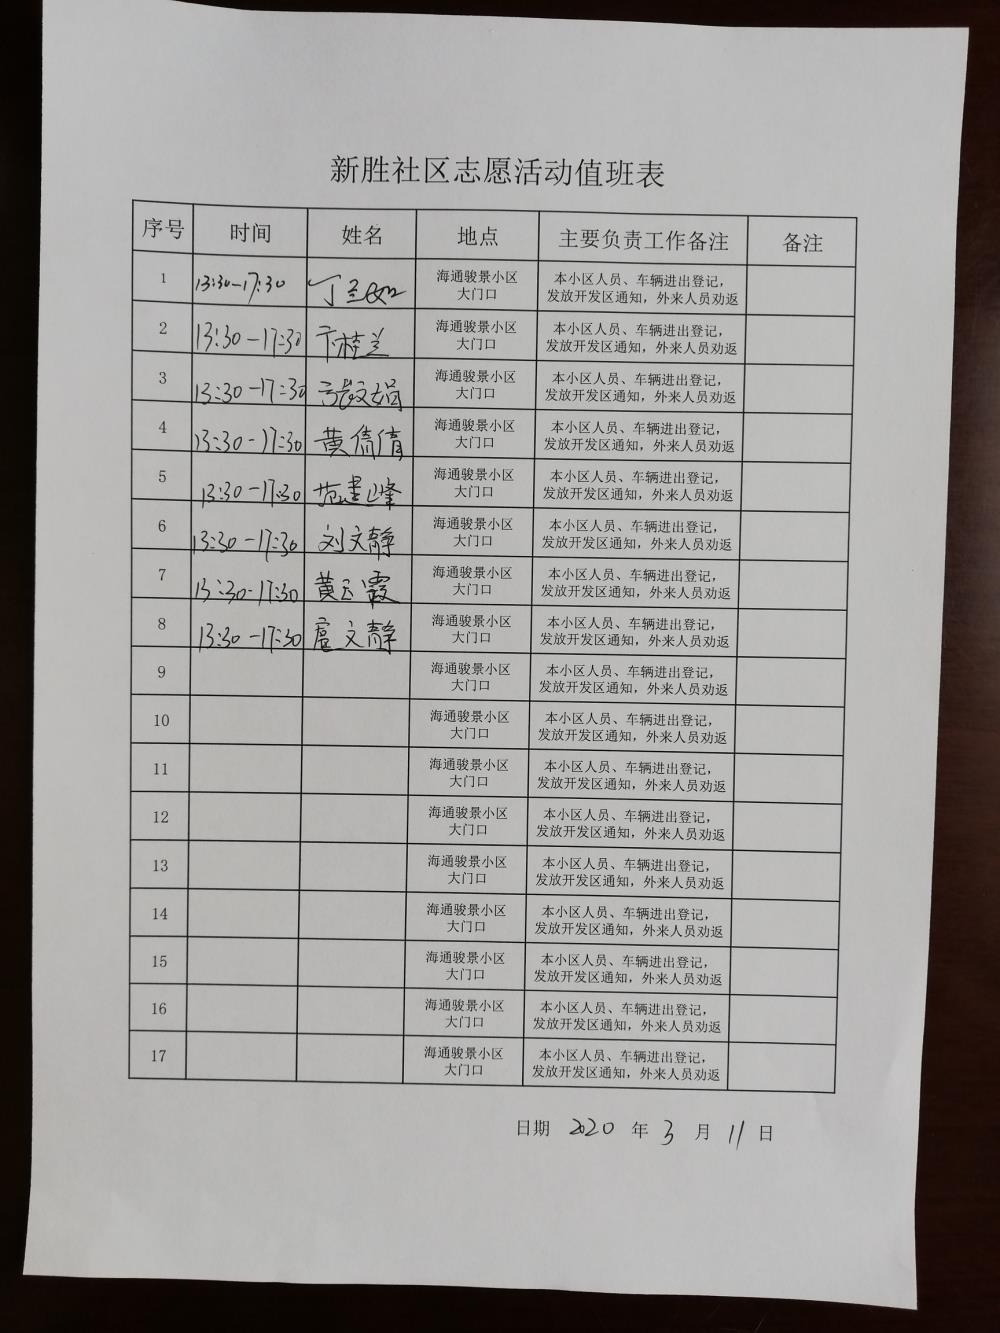 新胜社区志愿活动值班表
序号 时间 姓名 地点 主要负责工作备注 备注
1 13:30-17:30 丁兰如 海通骏景小区 本小区人员、车辆进出登记，
大门口 发放开发区通知，外来人员劝返
2 13:30-17:30 卞桂兰 海通骏景小区 本小区人员、车辆进出登记，
大门口 发放开发区通知，外来人员劝返
3 13:30-17:30 海通骏景小区 本小区人员、车辆进出登记，
大门口 发放开发区通知，外来人员劝返
4 13:30-17:30 黄倩倩 海通骏景小区 本小区人员、车辆进出登记，
大门口 发放开发区通知，外来人员劝返
5 13:30-17:30 范建峰 海通骏景小区 本小区人员、车辆进出登记，
大门口 发放开发区通知，外来人员劝返
6 13:30-17:30 刘文静 海通骏景小区 本小区人员、车辆进出登记，
大门口 发放开发区通知，外来人员劝返
7 13:30-17:30 黄玉霞 海通骏景小区 本小区人员、车辆进出登记，
大门口 发放开发区通知，外来人员劝返
8 13:30-17:30 文静 海通骏景小区 本小区人员、车辆进出登记，
大门口 发放开发区通知，外来人员劝返
9 海通骏景小区 本小区人员、车辆进出登记，
大门口 发放开发区通知，外来人员劝返
10 海通骏景小区 本小区人员、车辆进出登记，
大门口 发放开发区通知，外来人员劝返
11 海通骏景小区 本小区人员、车辆进出登记，
大门口 发放开发区通知，外来人员劝返
12 海通骏景小区 本小区人员、车辆进出登记，
大门口 发放开发区通知，外来人员劝返
13 海通骏景小区 本小区人员、车辆进出登记，
大门口 发放开发区通知，外来人员劝返
14 海通骏景小区 本小区人员、车辆进出登记，
大门口 发放开发区通知，外来人员劝返
15 海通骏景小区 本小区人员、车辆进出登记，
大门口 发放开发区通知，外来人员劝返
16 海通骏景小区 本小区人员、车辆进出登记，
大门口 发放开发区通知，外来人员劝返
17 海通骏景小区 本小区人员、车辆进出登记，
大门口 发放开发区通知，外来人员劝返
日期 2020 年 3 月 11 日